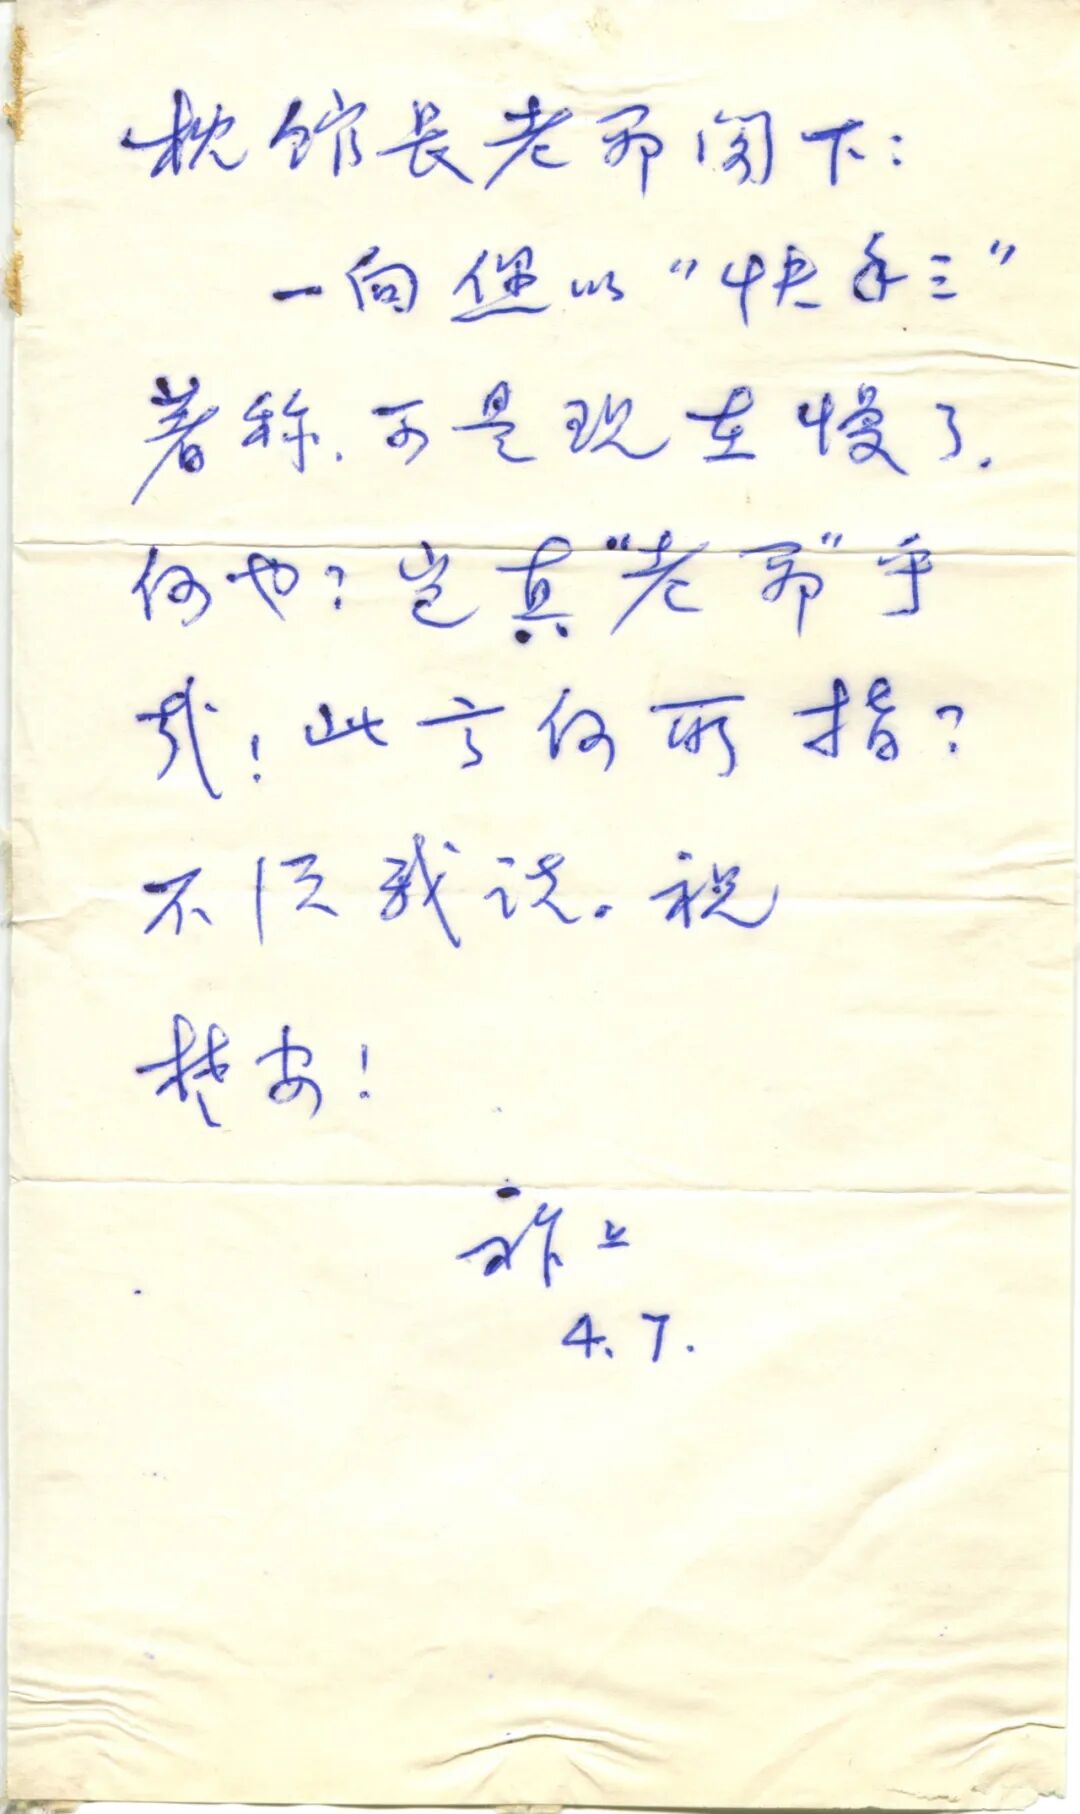 枕馆长老爷阁下：
一向您以“快手三”
著称，可是现在慢了。
何也？岂真“老爷”乎
哉！此言何所指？
不须我说。祝
楚安！
祚上
4.7.